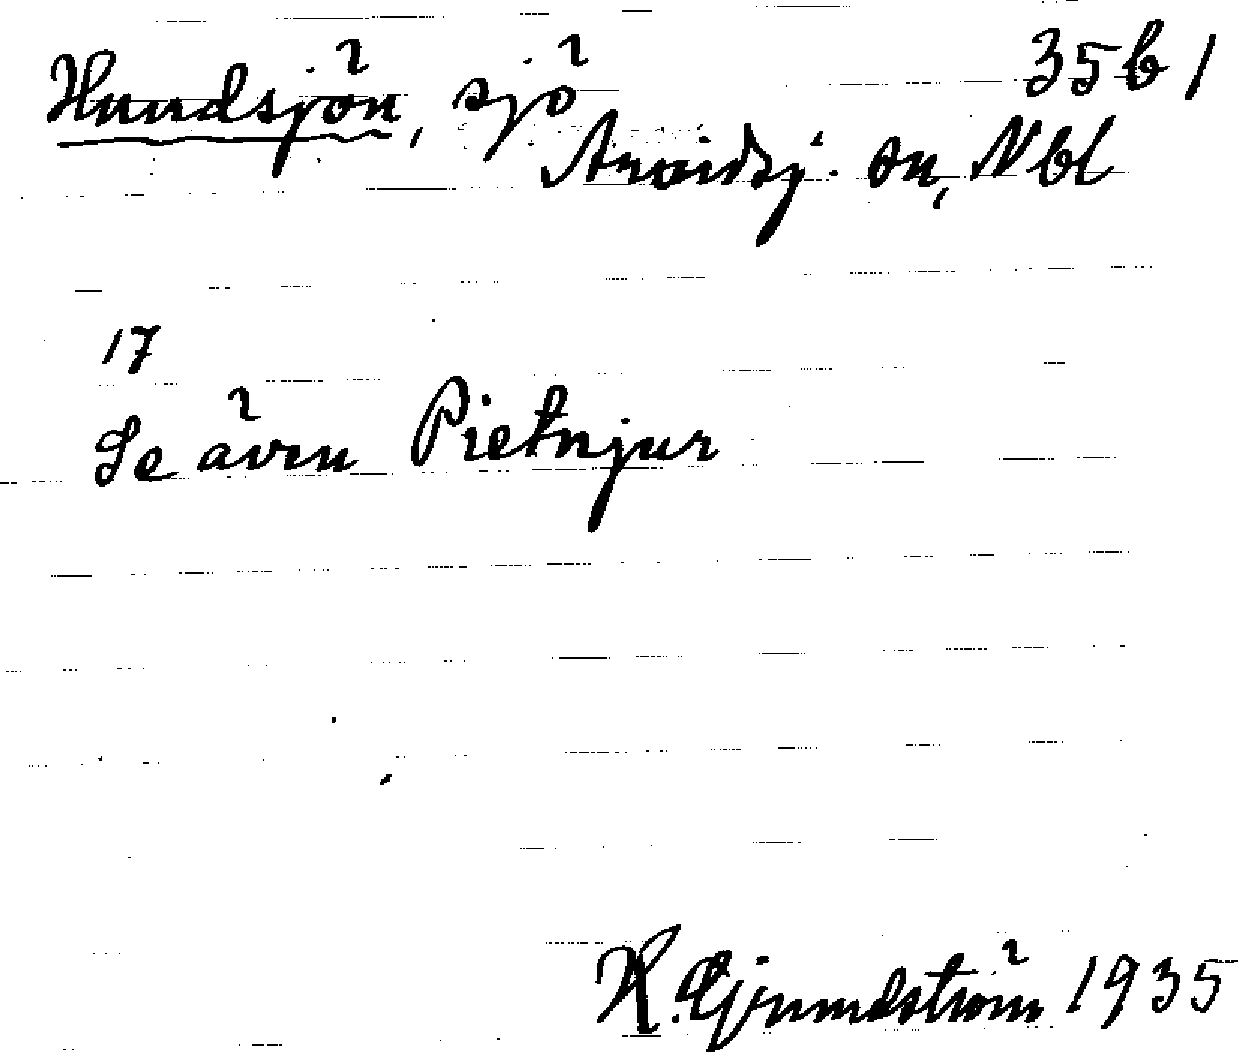 Hundsjön, sjö 35 b 1
Arvidsj. sn, Nbl
17
Se även Pietnjur
H. Grundström 1935